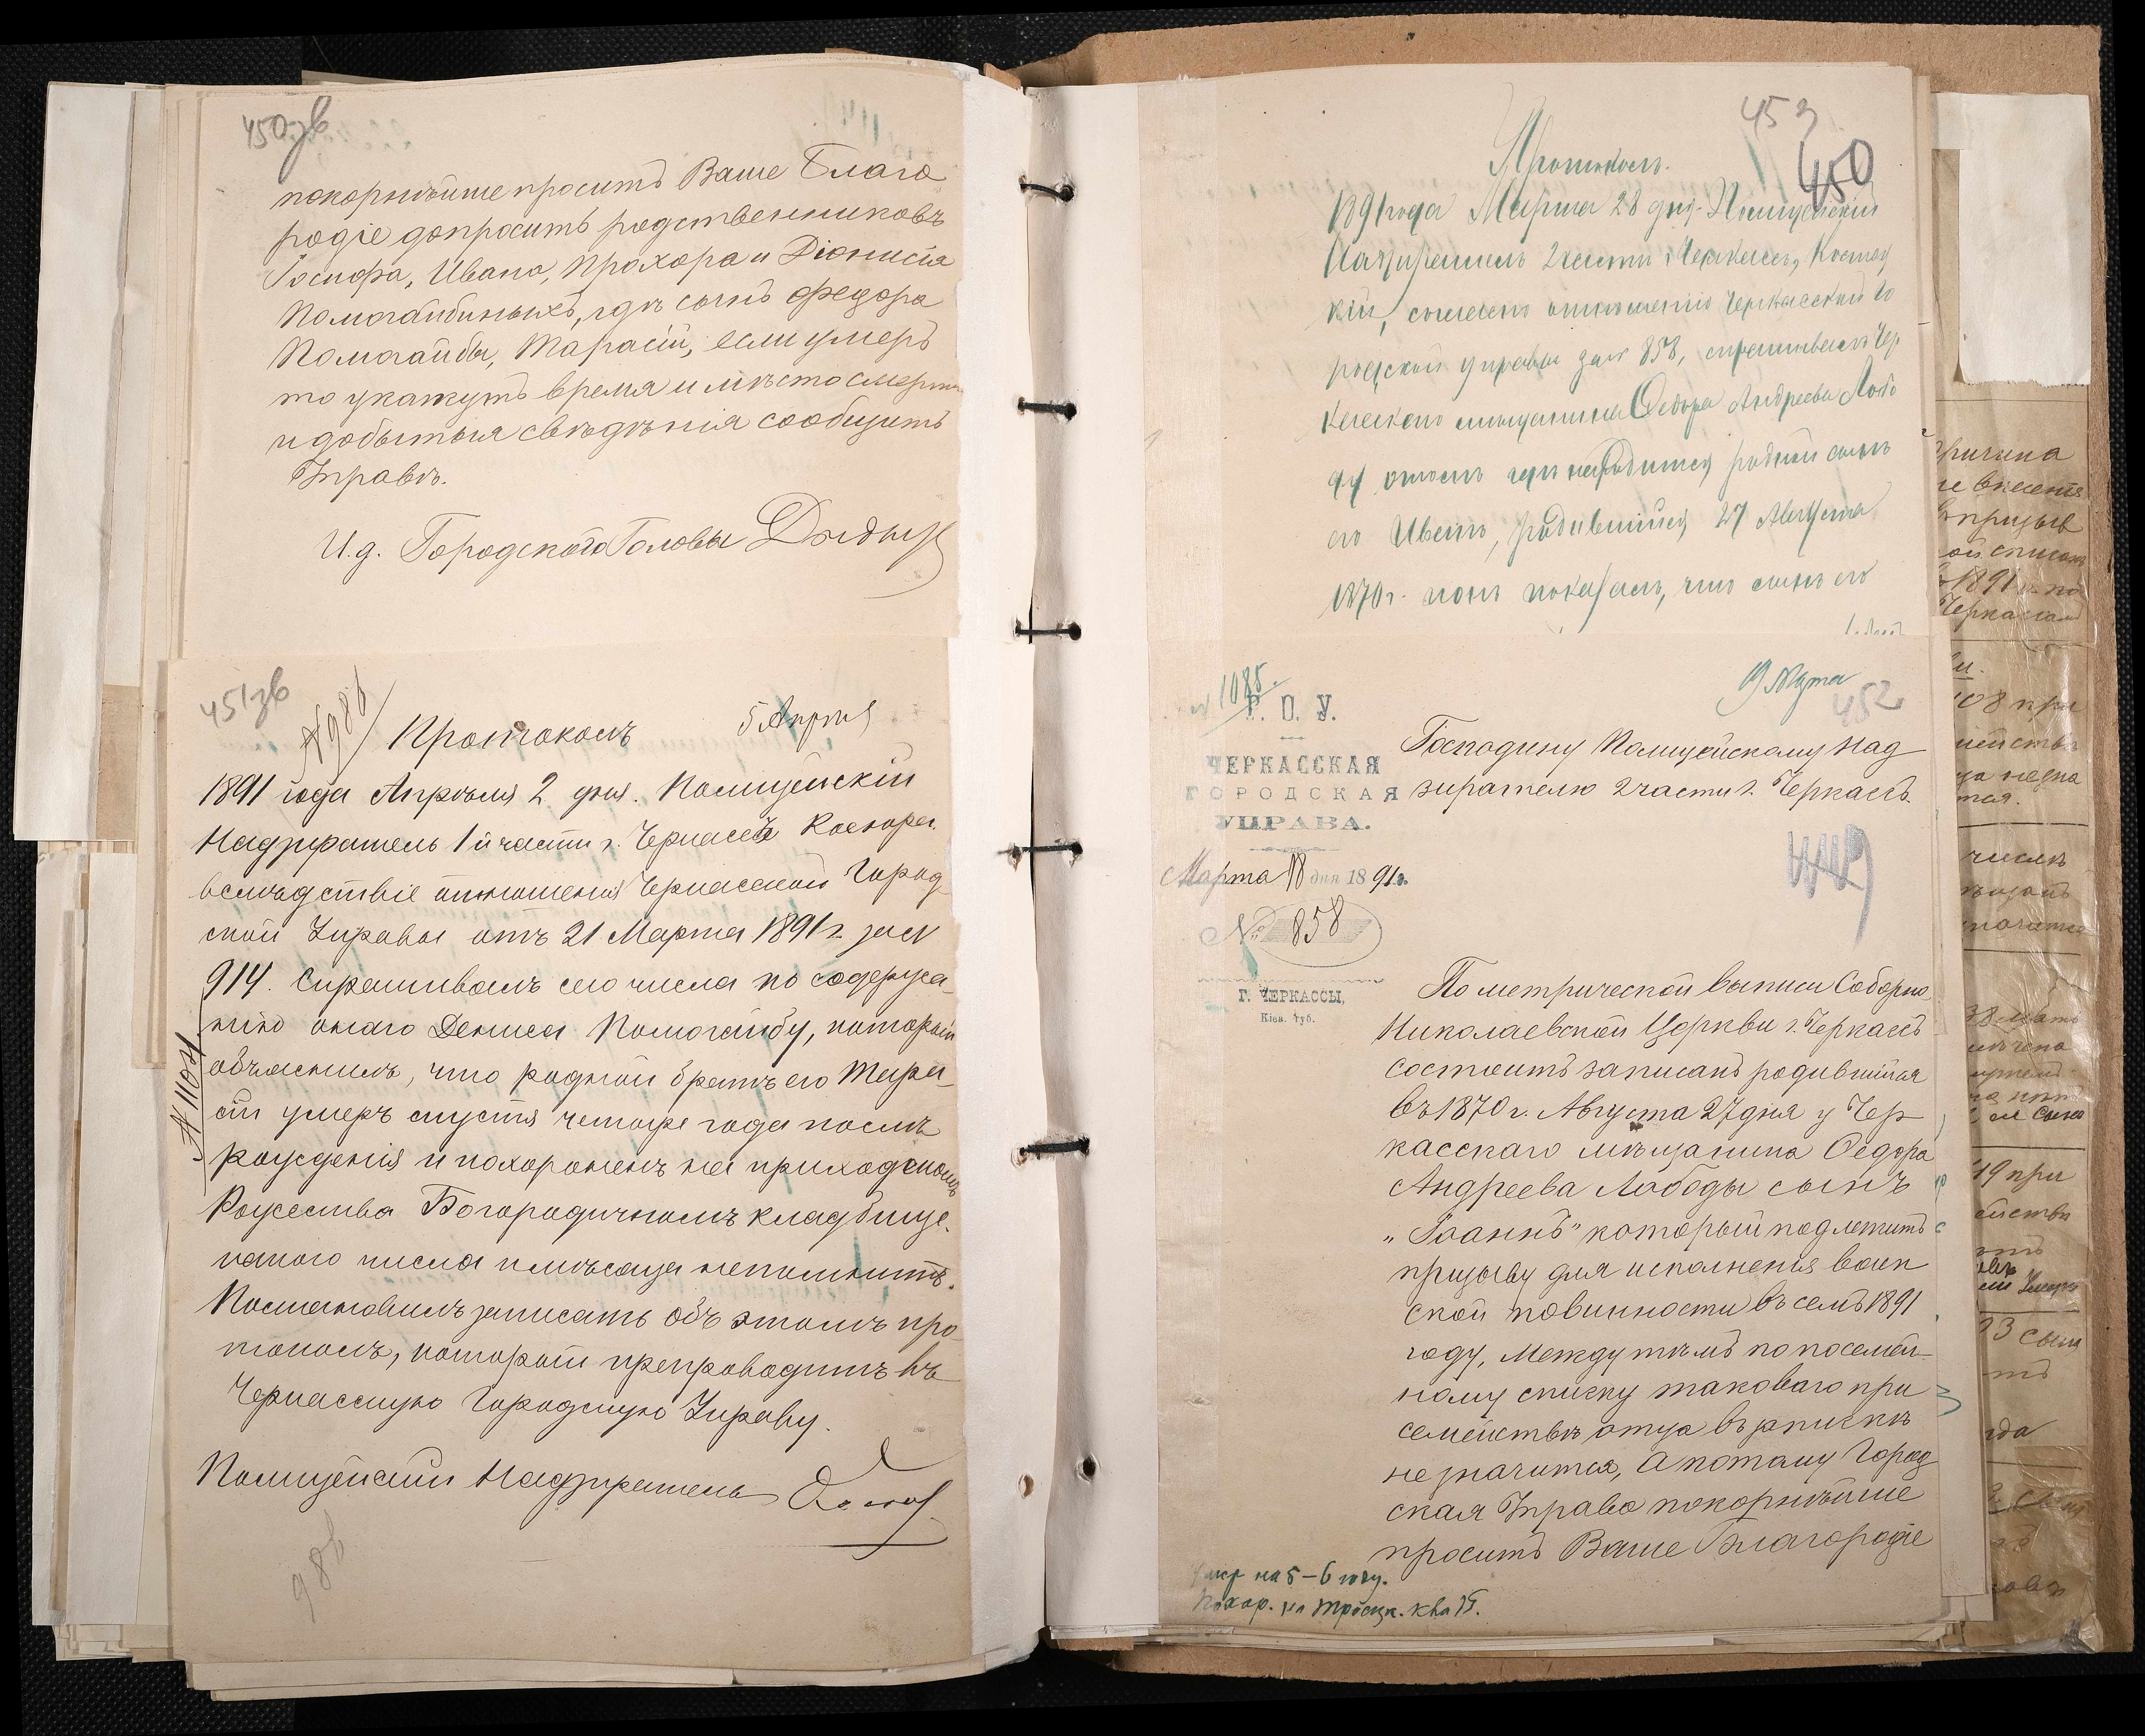 450зв
покорнѣйше проситъ Ваше Благо
родіе допросить родственниковъ
Іосифа, Ивана, Прохора и Діонисія
Помогайбиныхъ, гдѣ сынъ Федора
Помогайбы, Тарасій, если умеръ
то укажутъ время и мѣсто смерти
и добытыя свѣдѣнія сообщить
Управѣ.
И.д. Городского Головы
451зв
№986
Протоколъ
5 Апрѣл
1891 года Апрѣля 2 дня. Полицейскій
Надзиратель 1й части г. Черкассъ
вслѣдствіе отношенія Черкасской Город
ской Управы отъ 21 Марта 1891 г. за №
914. Спрашивалъ сего числа по содержа-
нію онаго Дениса Помогайбу, который
объяснилъ, что родной братъ его Тара-
сій умеръ спустя четыре года послѣ
рожденія и похороненъ на приходскомъ
Рожества Богородичномъ кладбище.
какого числа и мѣсяца непомнитъ.
Постановилъ записать объ этомъ про
токолъ, который препроводить въ
Черкасскую Городскую Управу.
Полицейскій Надзиратель
№ 1104
986
453
450
Протоколъ.
1891 года Марта 28 дня. Полицейскій
Надзиратель 2 части г. Черкассъ,
кій, согласно отношенію Черкасской Го
родской Управы за № 858, спрашивалъ Чер
касскаго мѣщанина Ѳедора Андреева Лобо
ду о томъ гдѣ находится родной сынъ
его Иванъ, родившійся 27 Августа
1870 г. и онъ показалъ, что сынъ его
№ 1085.
19 Марта
452
Г. О. У.
ЧЕРКАССКАЯ
ГОРОДСКАЯ
УПРАВА.
Марта 18 дня 1891г.
№ 858
Г. ЧЕРКАССЫ,
Кіев. губ.
Господину Полицейскому Над
зирателю 2 части г. Черкассъ.
449
По метрической выписи Соборно
Николаевской Церкви г. Черкассъ
состоитъ записанъ родившійся
въ 1870 г. Августа 27 дня у Чер
касскаго мѣщанина Ѳедора
Андреева Лободы сынъ
„Іоаннъ" который подлежитъ
призыву для исполненія воин
ской повинности въ семъ 1891
году, Между тѣмъ по посемей-
ному списку таковаго при
семействѣ отца въ запискѣ
не значится, А потому Город
ская Управа покорнѣйше
проситъ Ваше Благородіе
Умер на 5-6 году.
Похор. на Троицк. кла